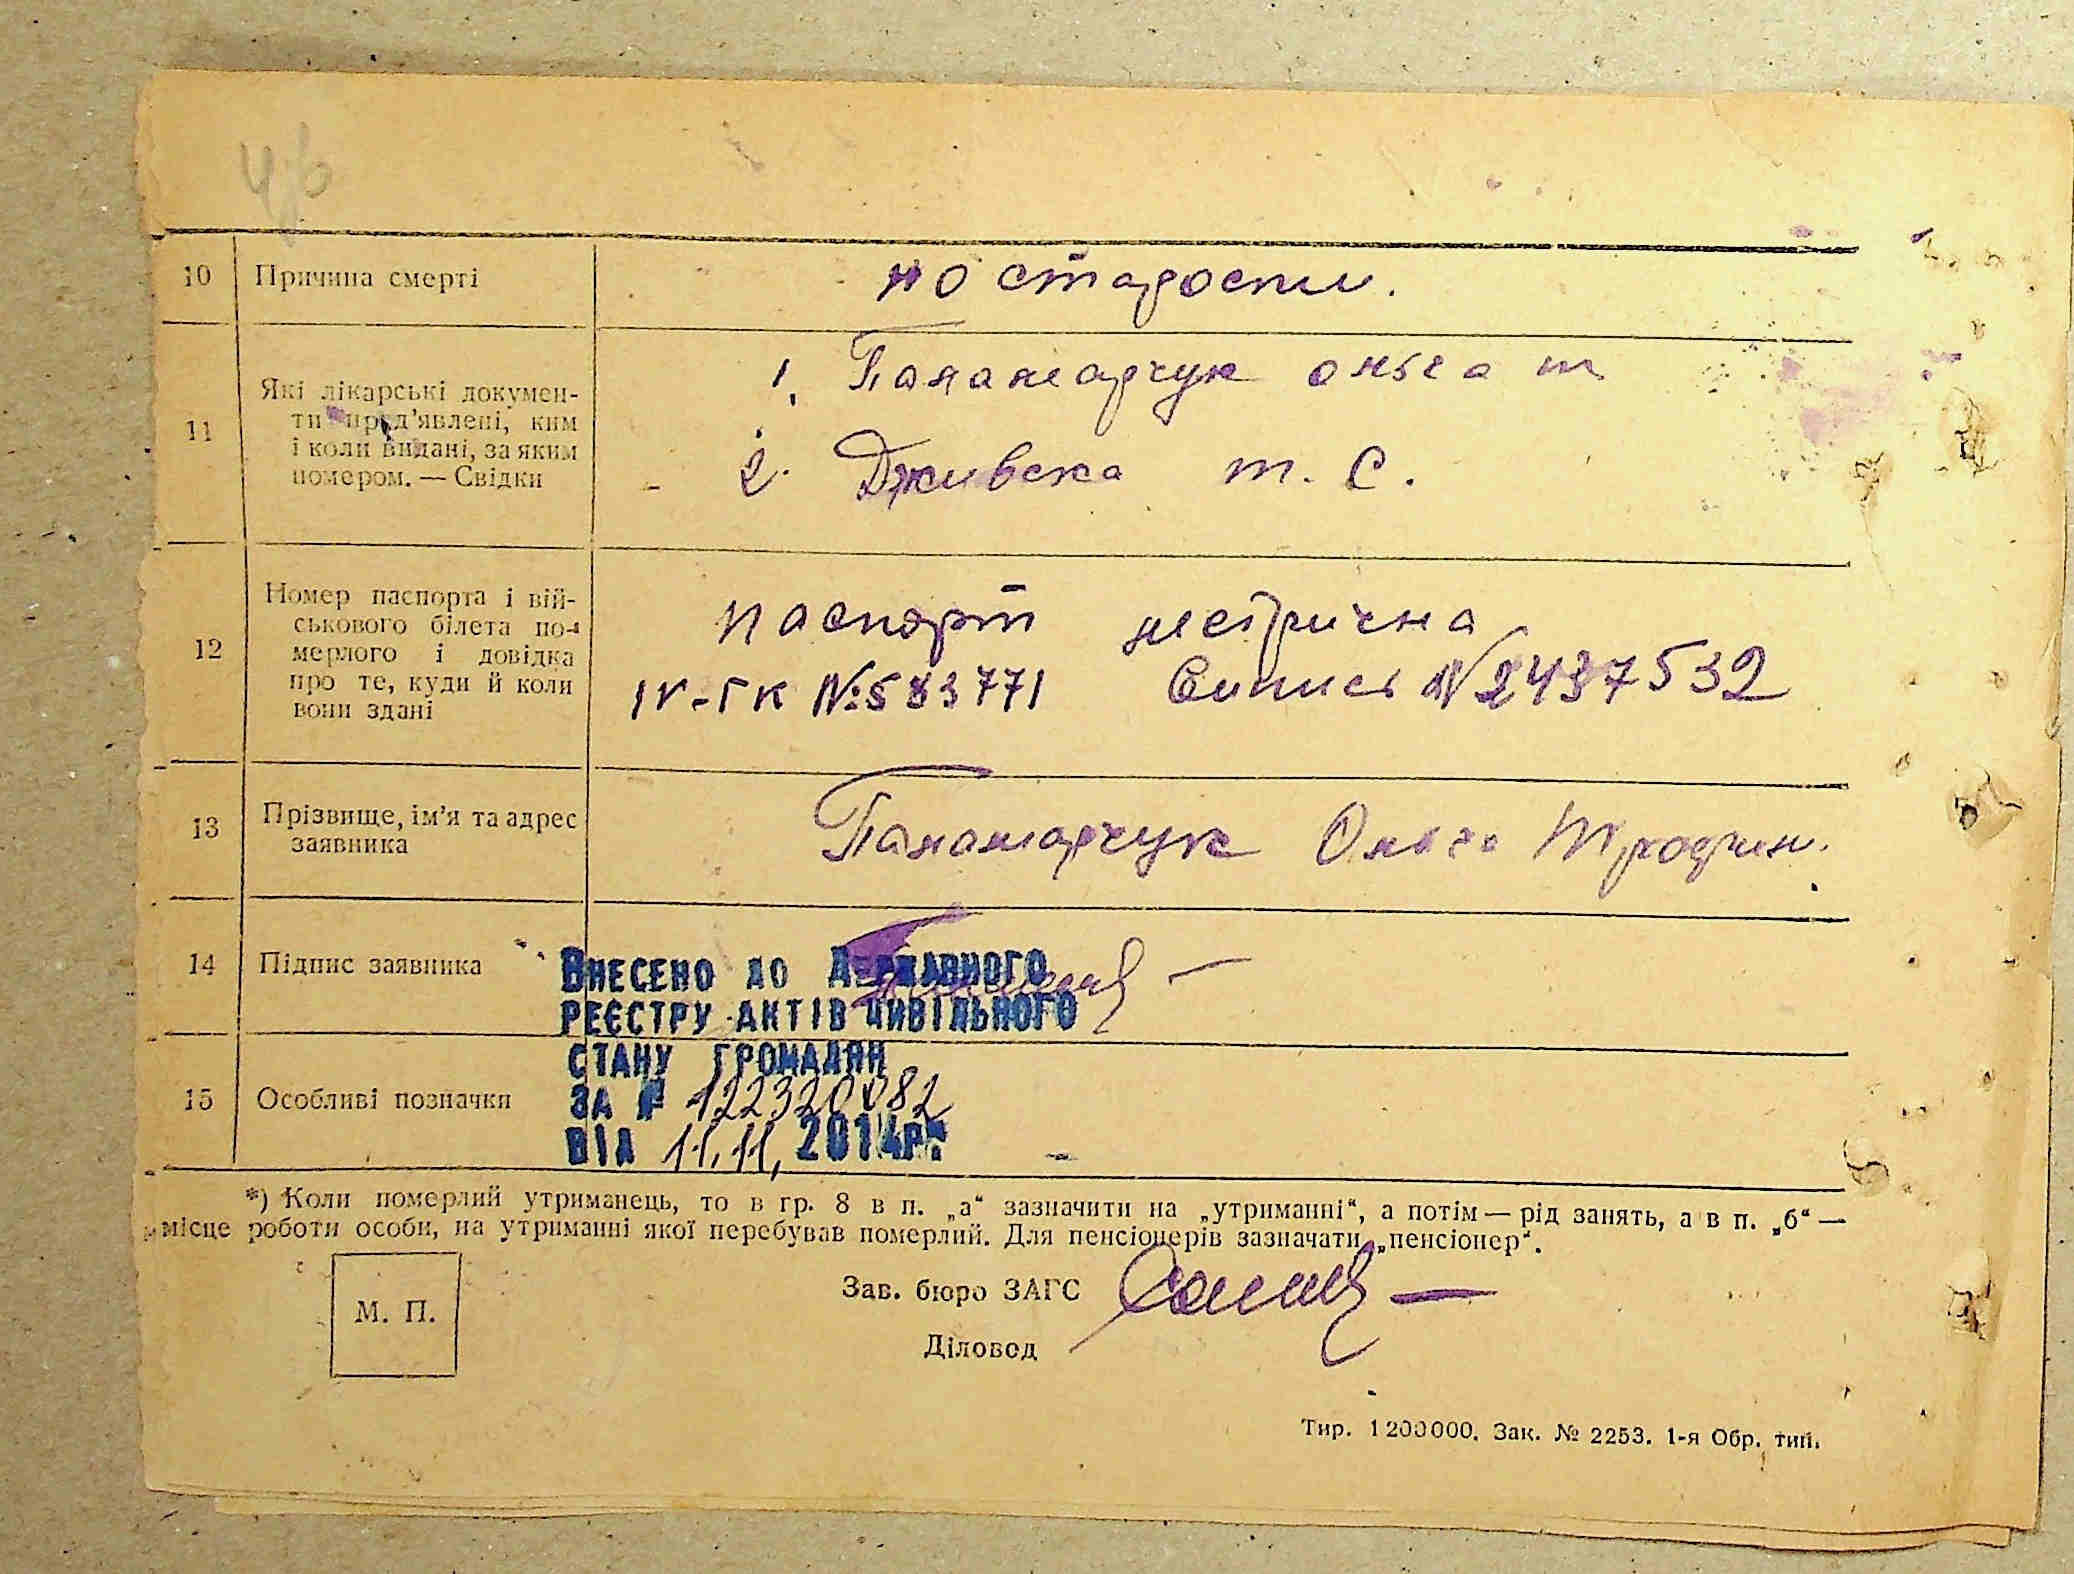 10 Причина смерті по старости.
11 Які лікарські докумен-
ти пред'явлені, ким
і коли видані, за яким
номером. — Свідки
1. Панамарчук ольга т
2. Дживска т. С.
12 Номер паспорта і вій-
ськового білета по-
мерлого і довідка
про те, куди й коли
вони здані
паспорт метрична
IV-ГК №583771 Випись №2437532
13 Прізвище, ім'я та адрес
заявника
Панамарчук Ольга
14 Підпис заявника
Внесено до Державного
реєстру актів цивільного
стану громадян
за № 122320082
від 11.11.2014р.
15 Особливі позначки
*) Коли померлий утриманець, то в гр. 8 в п. „а“ зазначити на „утриманні“, а потім — рід занять, а в п. „б“ —
місце роботи особи, на утриманні якої перебував померлий. Для пенсіонерів зазначати „пенсіонер“.
М. П.
Зав. бюро ЗАГС
Діловод
Тир. 1 200 000. Зак. № 2253. 1-я Обр. тип.